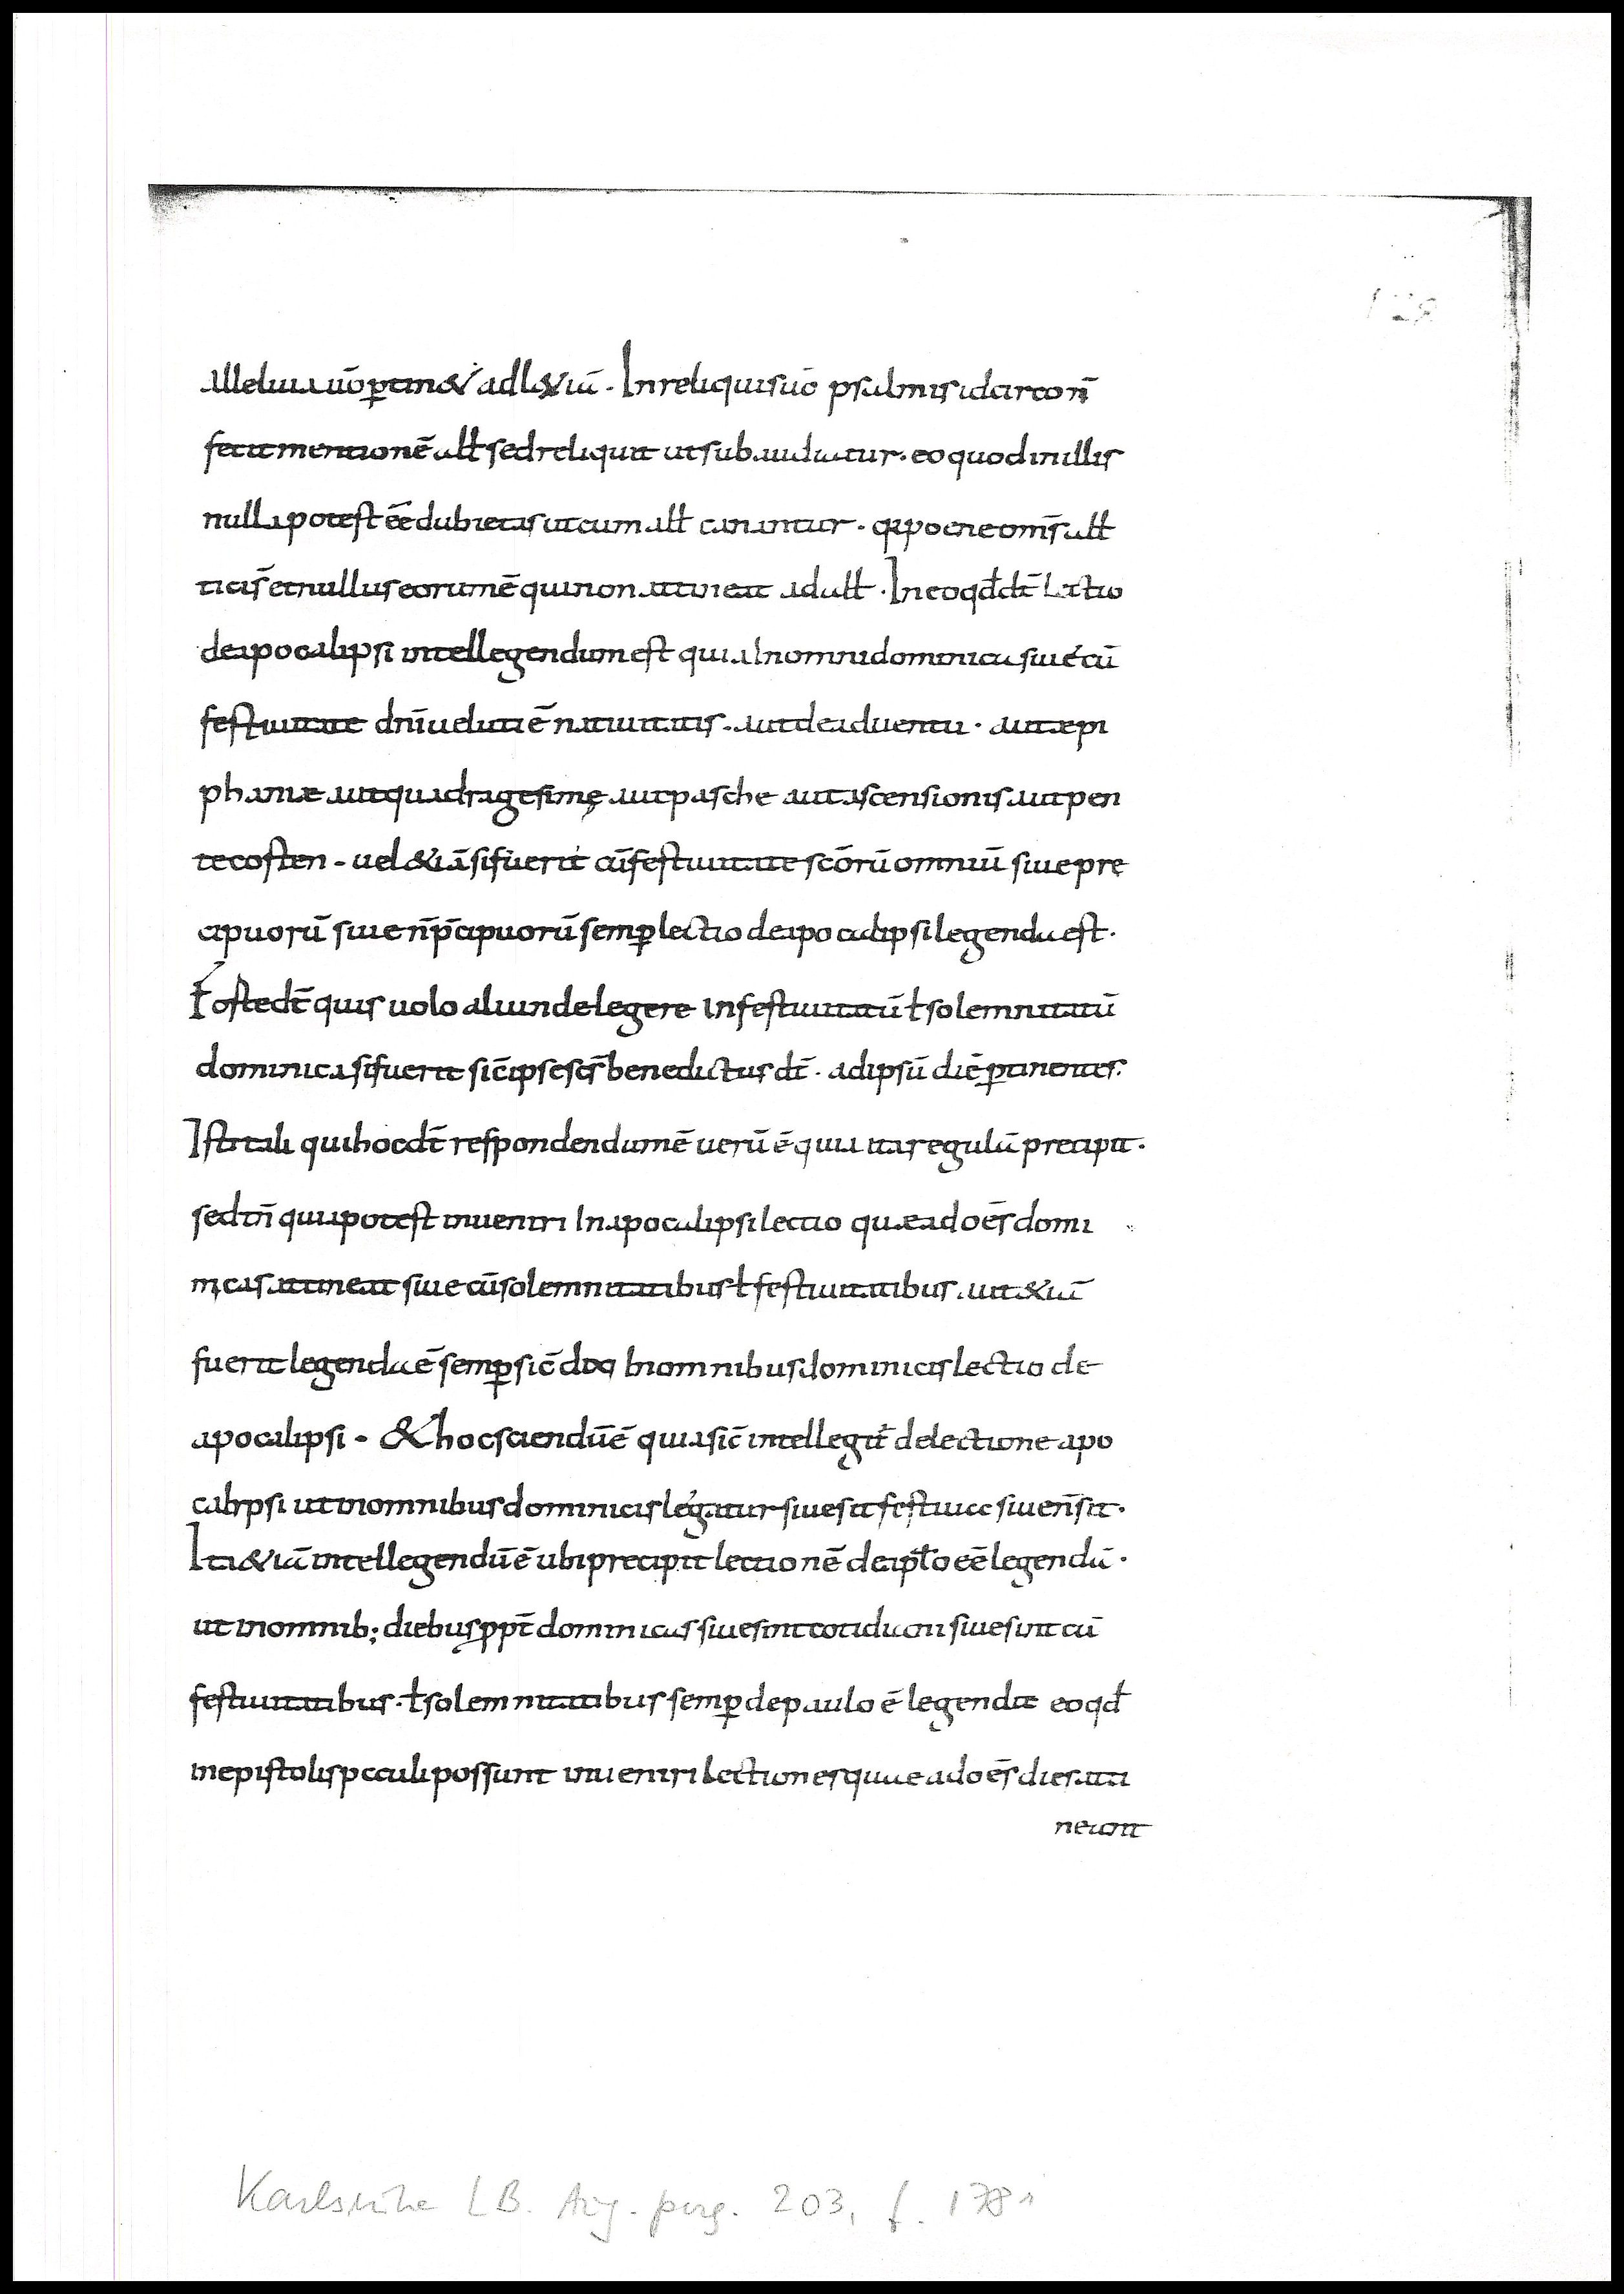 alleluia uō ꝑtin& ad l&iā. In reliquis uō psalmis idcirco ñ
fecit mentionē allł sed reliquit ut subaudiatur. eo quod in illis
nulla potest ēē dubietas ut cum allł canantur. q̄a poene om̄s allł
ticis̄ et nullus eorum ē qui non attineat ad allł. In eo qd̄ dic̄ Lectio
de apocalipsi intellegendum est quia In omni dominica siue cū
festiuitate dn̄i ueluti ē natiuitatis. aut de aduentu. aut epi
phaniæ aut quadragesimę aut pasche aut ascensionis aut pen
tecosten. uel &iā si fuerit cū festiuitate sc̄orū omniū siue prę
cipuorū siue n̄ p̄cipuorū semꝑ lectio de apocalipsi legenda est.
Forte dic̄ quis uolo aliunde legere in festiuitatū ł solemnitatū
dominica si fuerit sic̄ ipse sc̄s benedictus dic̄. ad ipsū diē ꝑtinentes.
Isti tali qui hoc dic̄ respondendum ē uerū ē quia ita regulā precipit.
sed tn̄ quia potest inueniri In apocalipsi lectio quæ ad oēs domi
nicas attineat siue cū solemnitatibus ł festiuitatibus. ut &iā
fuerit legenda ē semꝑ sic̄ dixi In omnibus dominicis lectio de
apocalipsi. & hoc sciendū ē quia sic̄ intellegit̄ de lectione apo
calipsi ut in omnibus dominicis legatur siue sit festiua siue n̄ sit.
Ita &iā intellegendū ē ubi precipit lectionē de apłō eē legendā.
ut in omnib; diebus ꝓpt̄ dominicas siue sint cotidiani siue sint cū
festiuitatibus. ł solemnitatibus semꝑ de paulo ē legendæ eo qd̄
in epistolis pauli possunt inueniri lectiones quae ad oēs dies atti
neant
Karlsruhe LB. Aug. perg. 203, f. 178r